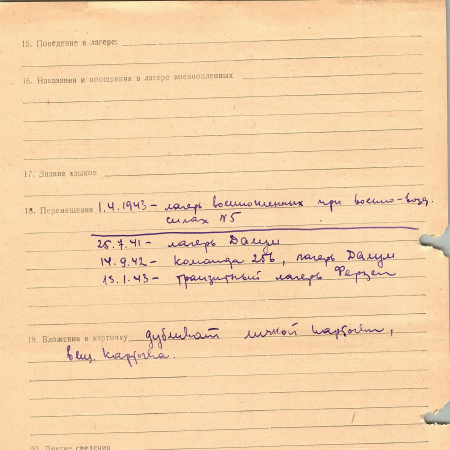 15. Поведение в лагере:
16. Наказания и поощрения в лагере военнопленных
17. Знание языков
18. Перемещения 1.4.1943 – лагерь военнопленных при военно-возд.
силах №5
25.7.41 – лагерь Далум
14.9.42 – команда 256, лагерь Далум
13.1.43 – транзитный лагерь Ферзен
19. Вложения в карточку дубликат личной карточки,
вещ. карточка.
20. Прочие сведения